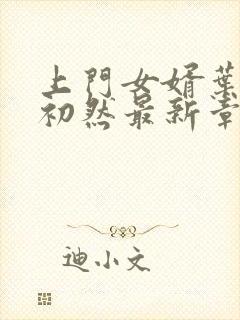 上門女婿葉
初然最新章
迪小文